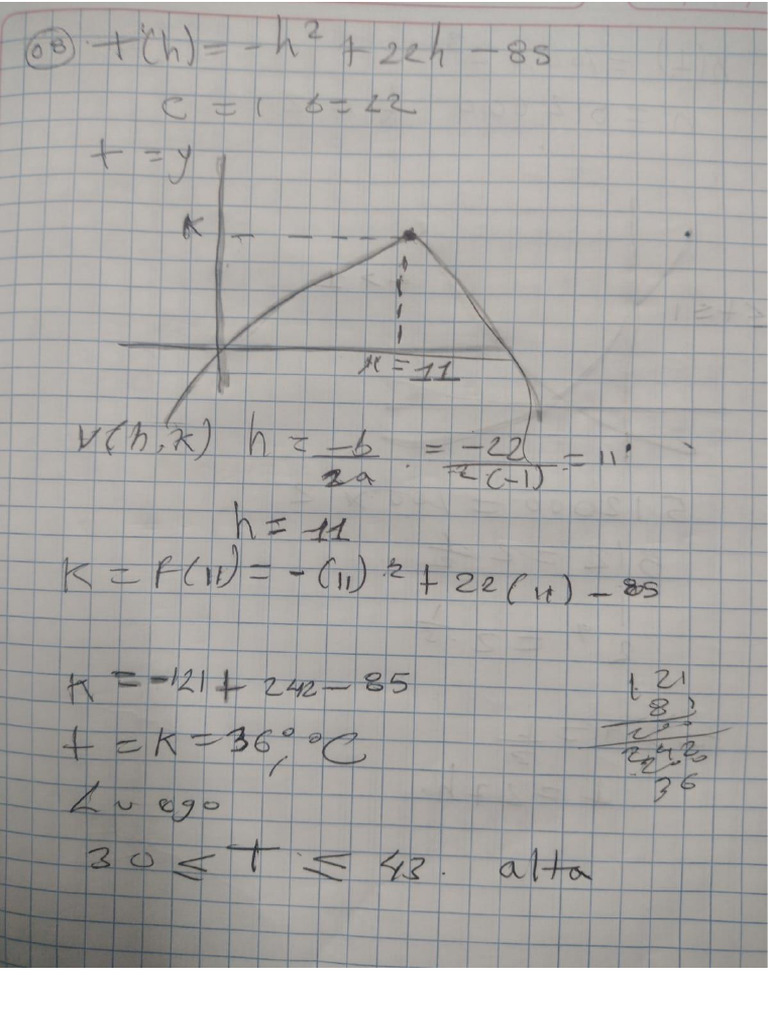 08. t(h) = -h² + 22h - 85
c = 1 b = 22
t = y
K
x = 11
V(h, K) h = -b/2a. = -22/2(-1) = 11
h = 11
K = F(11) = -(11)² + 22(11) - 85
K = -121 + 242 - 85
121
t = K = 36° °C
36
Luego
30 ≤ T ≤ 43. alta